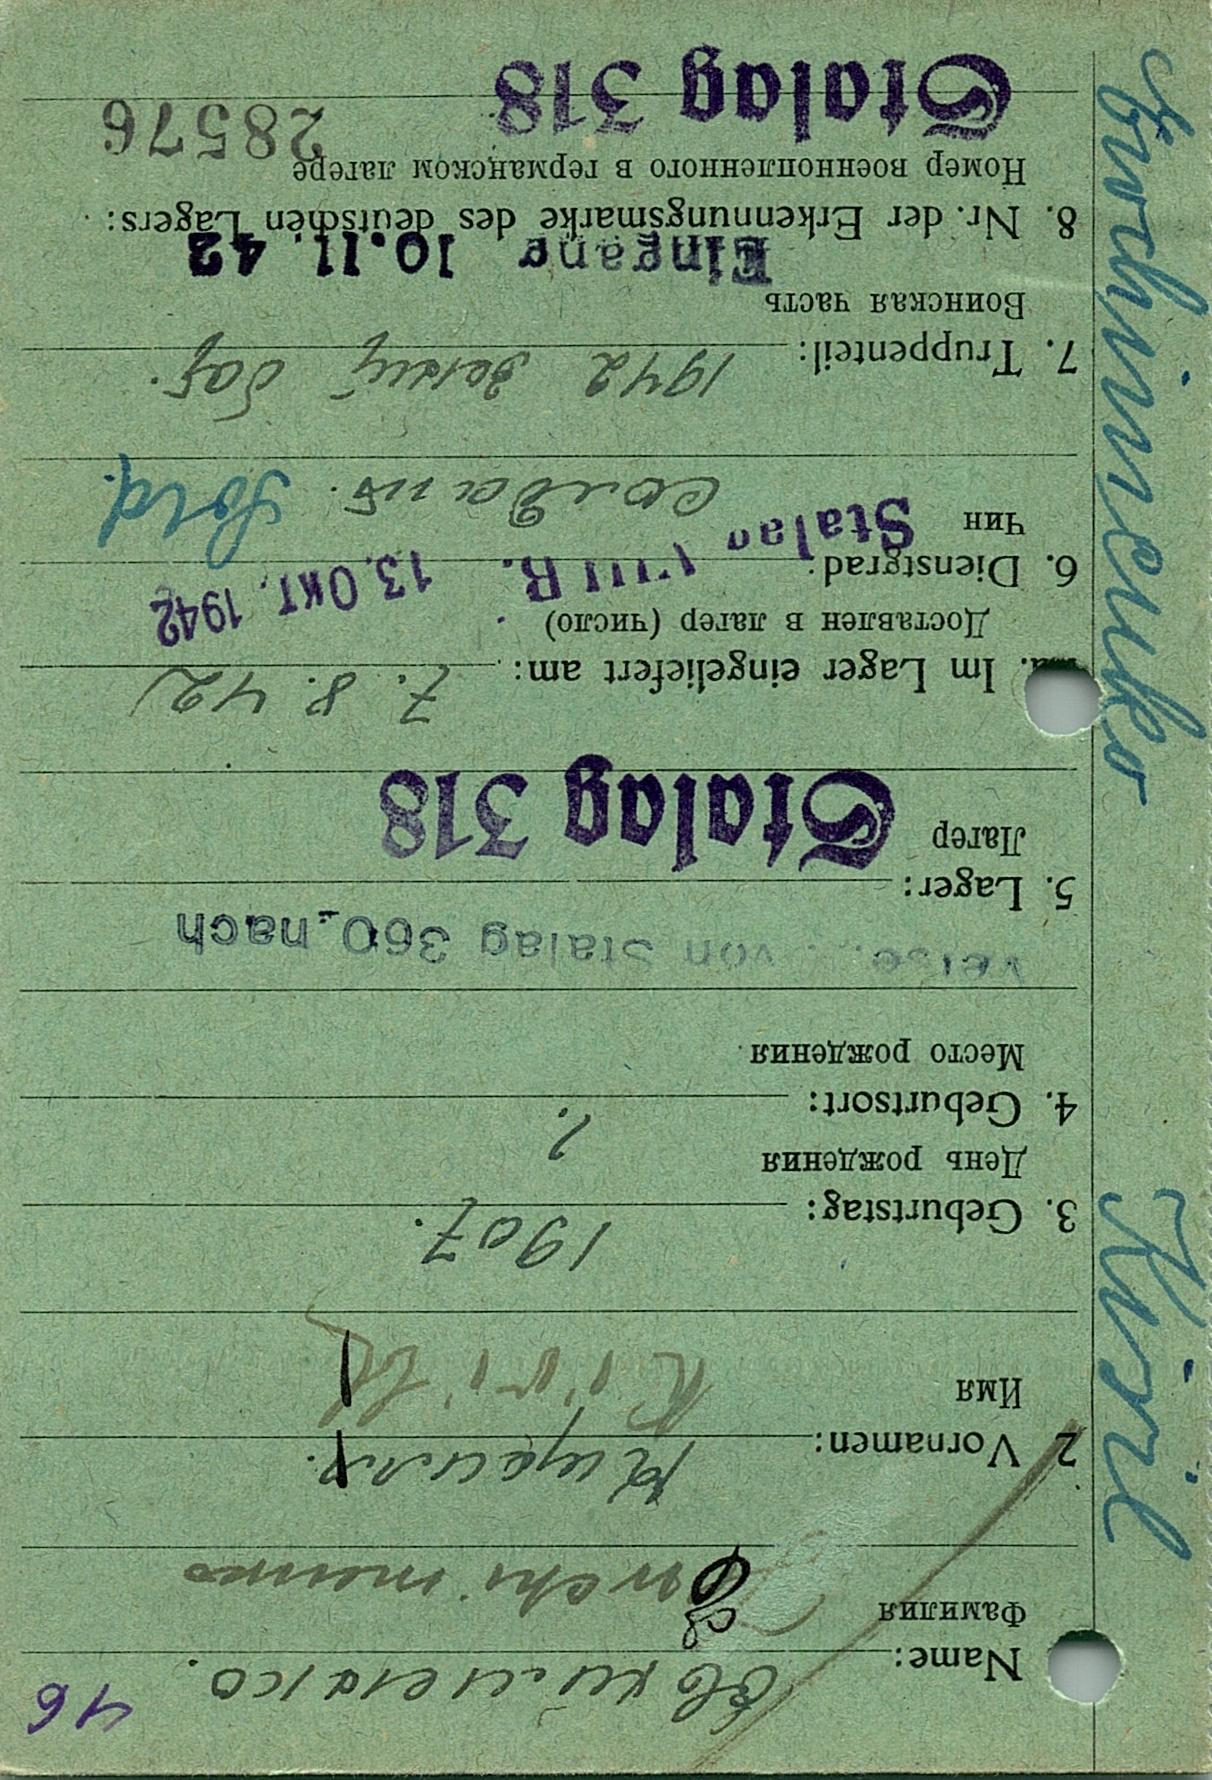 46
Евхименко.
Name:
Фамилия
Evchimenko
2 Vornamen:
Имя
Kiril
3. Geburtstag: 1907.
День рождения
4. Geburtsort: ?
Место рождения
von Stalag 360 nach
5. Lager:
Лагер
Stalag 318
Im Lager eingeliefert am: 7. 8. 42
Доставлен в лагер (число)
13. Okt. 1942
6. Dienstgrad: Stalag VIII B.
Чин
солдат. Sold.
7. Truppenteil: 1942 бат.
Воинская часть
Eingang 10. 11. 42
8. Nr. der Erkennungsmarke des deutschen Lagers:
Номер военнопленного в германском лагере
28576
Stalag 318
Kiril Evchimenko